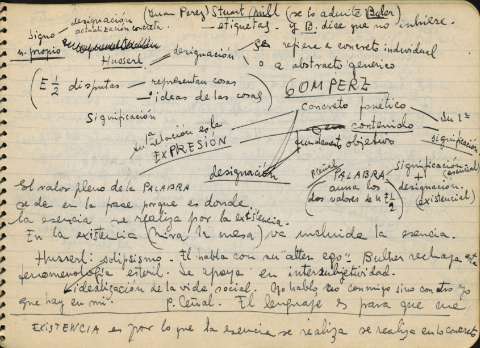 signo designación (Juan Perez) Stuart Mill (se lo admite Buler)
n. propio actualización concreta etiquetas. y B. dice que no inhiere.
Husserl designación se refiere a concreto individual
o a abstracto generico
(E 1/2 disputas — representan cosas
— ideas de las cosas)
GOMPERZ
Significación
concreto fonético
contenido
significación
fundament objetivo
su relación es la
EXPRESIÓN
designación
PALABRA
auna los
dos valores de la E 1/2
significación
(esencial)
+
designación
(existencial)
El valor pleno de la PALABRA
se da en la frase porque es donde
la esencia se realiza por la existencia.
En la existencia (mira la mesa) va incluida la esencia.
Husserl: solipsismo. El habla con su "alter ego". Bulher rechaza esta
fenomenología esteril. Se apoya en intersubjetividad.
idealización de la vida social. Yo hablo no conmigo sino con otro yo
que hay en mi".
P. Ceñal. El lenguaje es para que me
EXISTENCIA es por lo que la esencia se realiza se realiza en lo concreto